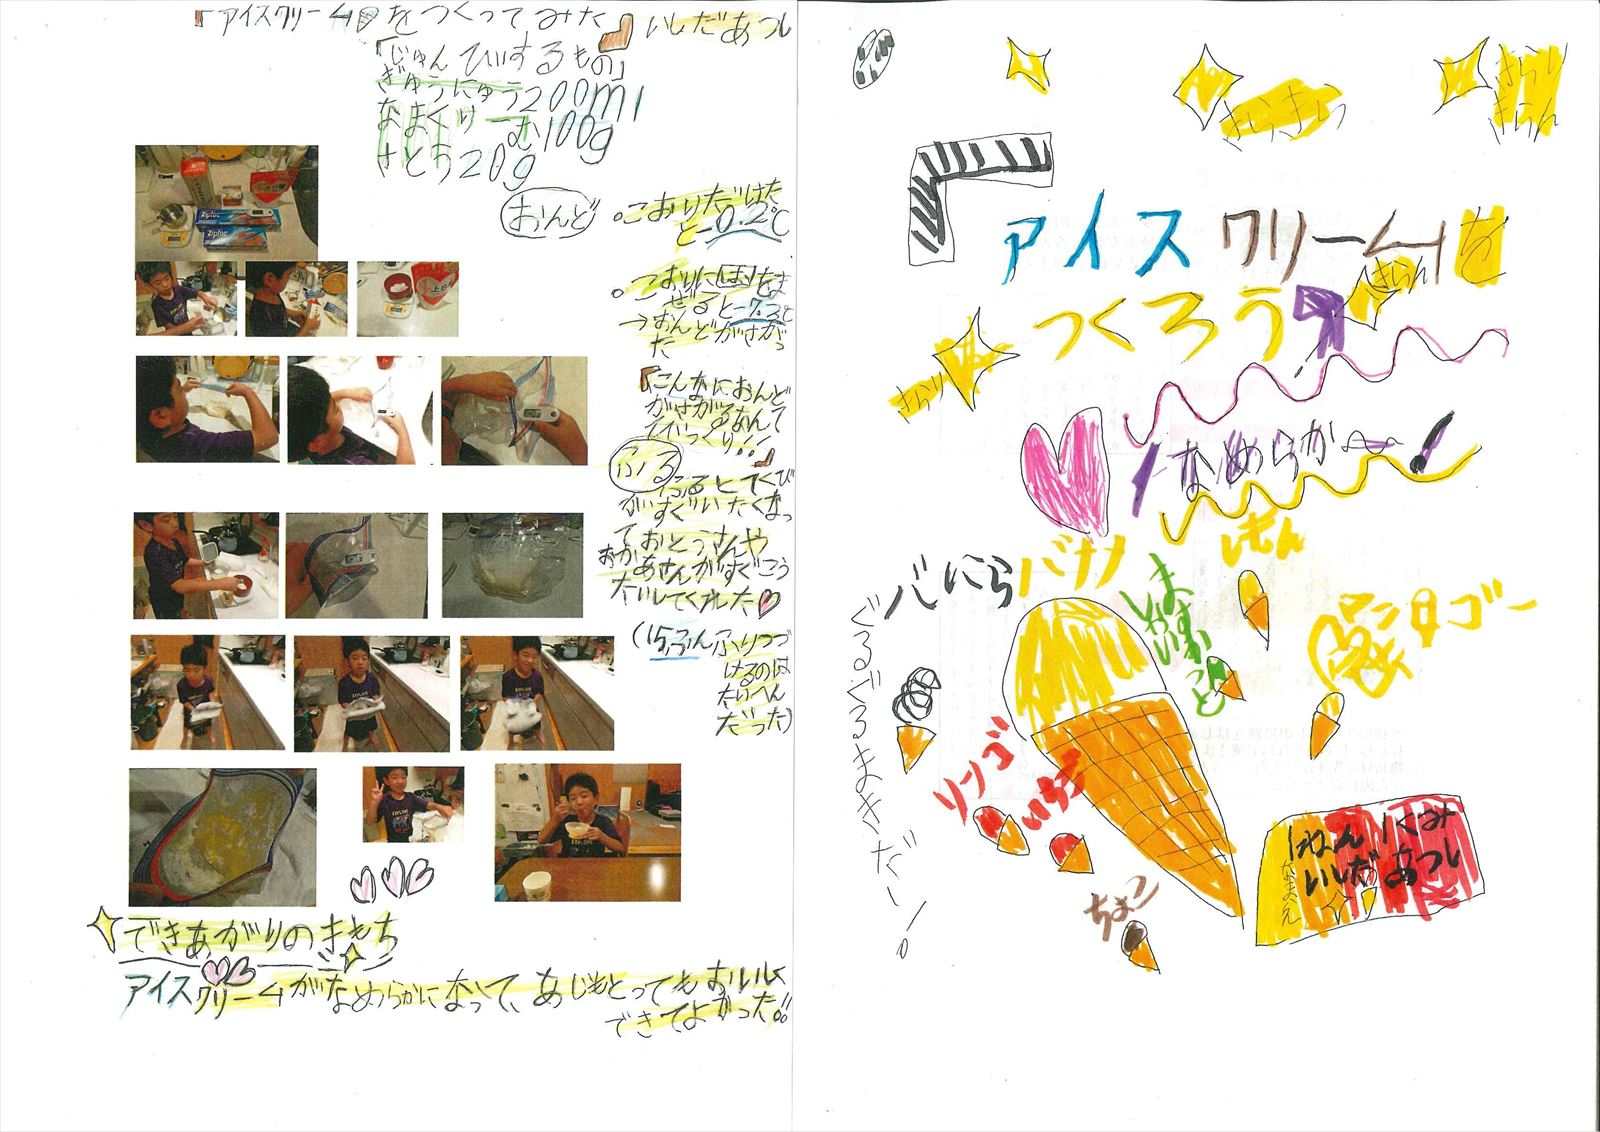 「アイスクリーム」をつくってみた
いしだあつし
「じゅんびするもの」
ぎゅうにゅう200ml
なまクリーム100g
さとう20g
おんど
。こおりだけだ
と-0.2℃
。こおりにしおをま
ぜると-7.3℃
→おんどがさがっ
た
「こんなにおんど
がさがるなんて
びっくり!!」
ふる
ふるとてくび
がすぐいたくなっ
ておとうさんや
おかあさんがすぐこう
たいしてくれた
(15ふんふりつづ
けるのは
たいへん
だった)
できあがりのきもち
アイスクリームがなめらかになって、あじもとってもおいしく
できてよかった!!
Ziploc
Ziploc
EXPLORE
きらきら
きらり
きらん
「アイスクリームを
きらん
つくろう」
きらり
なめらか〜
バにら
バナナ
まっちゃ
レモん
マンゴー
ぐるぐるまきだー!
リンゴ
いちご
ちょこ
1ねん1くみ
なまえ
いしだあつし